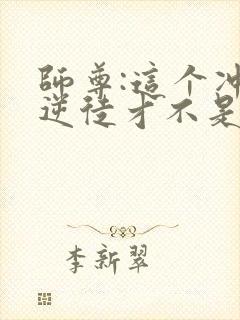 師尊:這个冲
逆徒才不是
李新翠